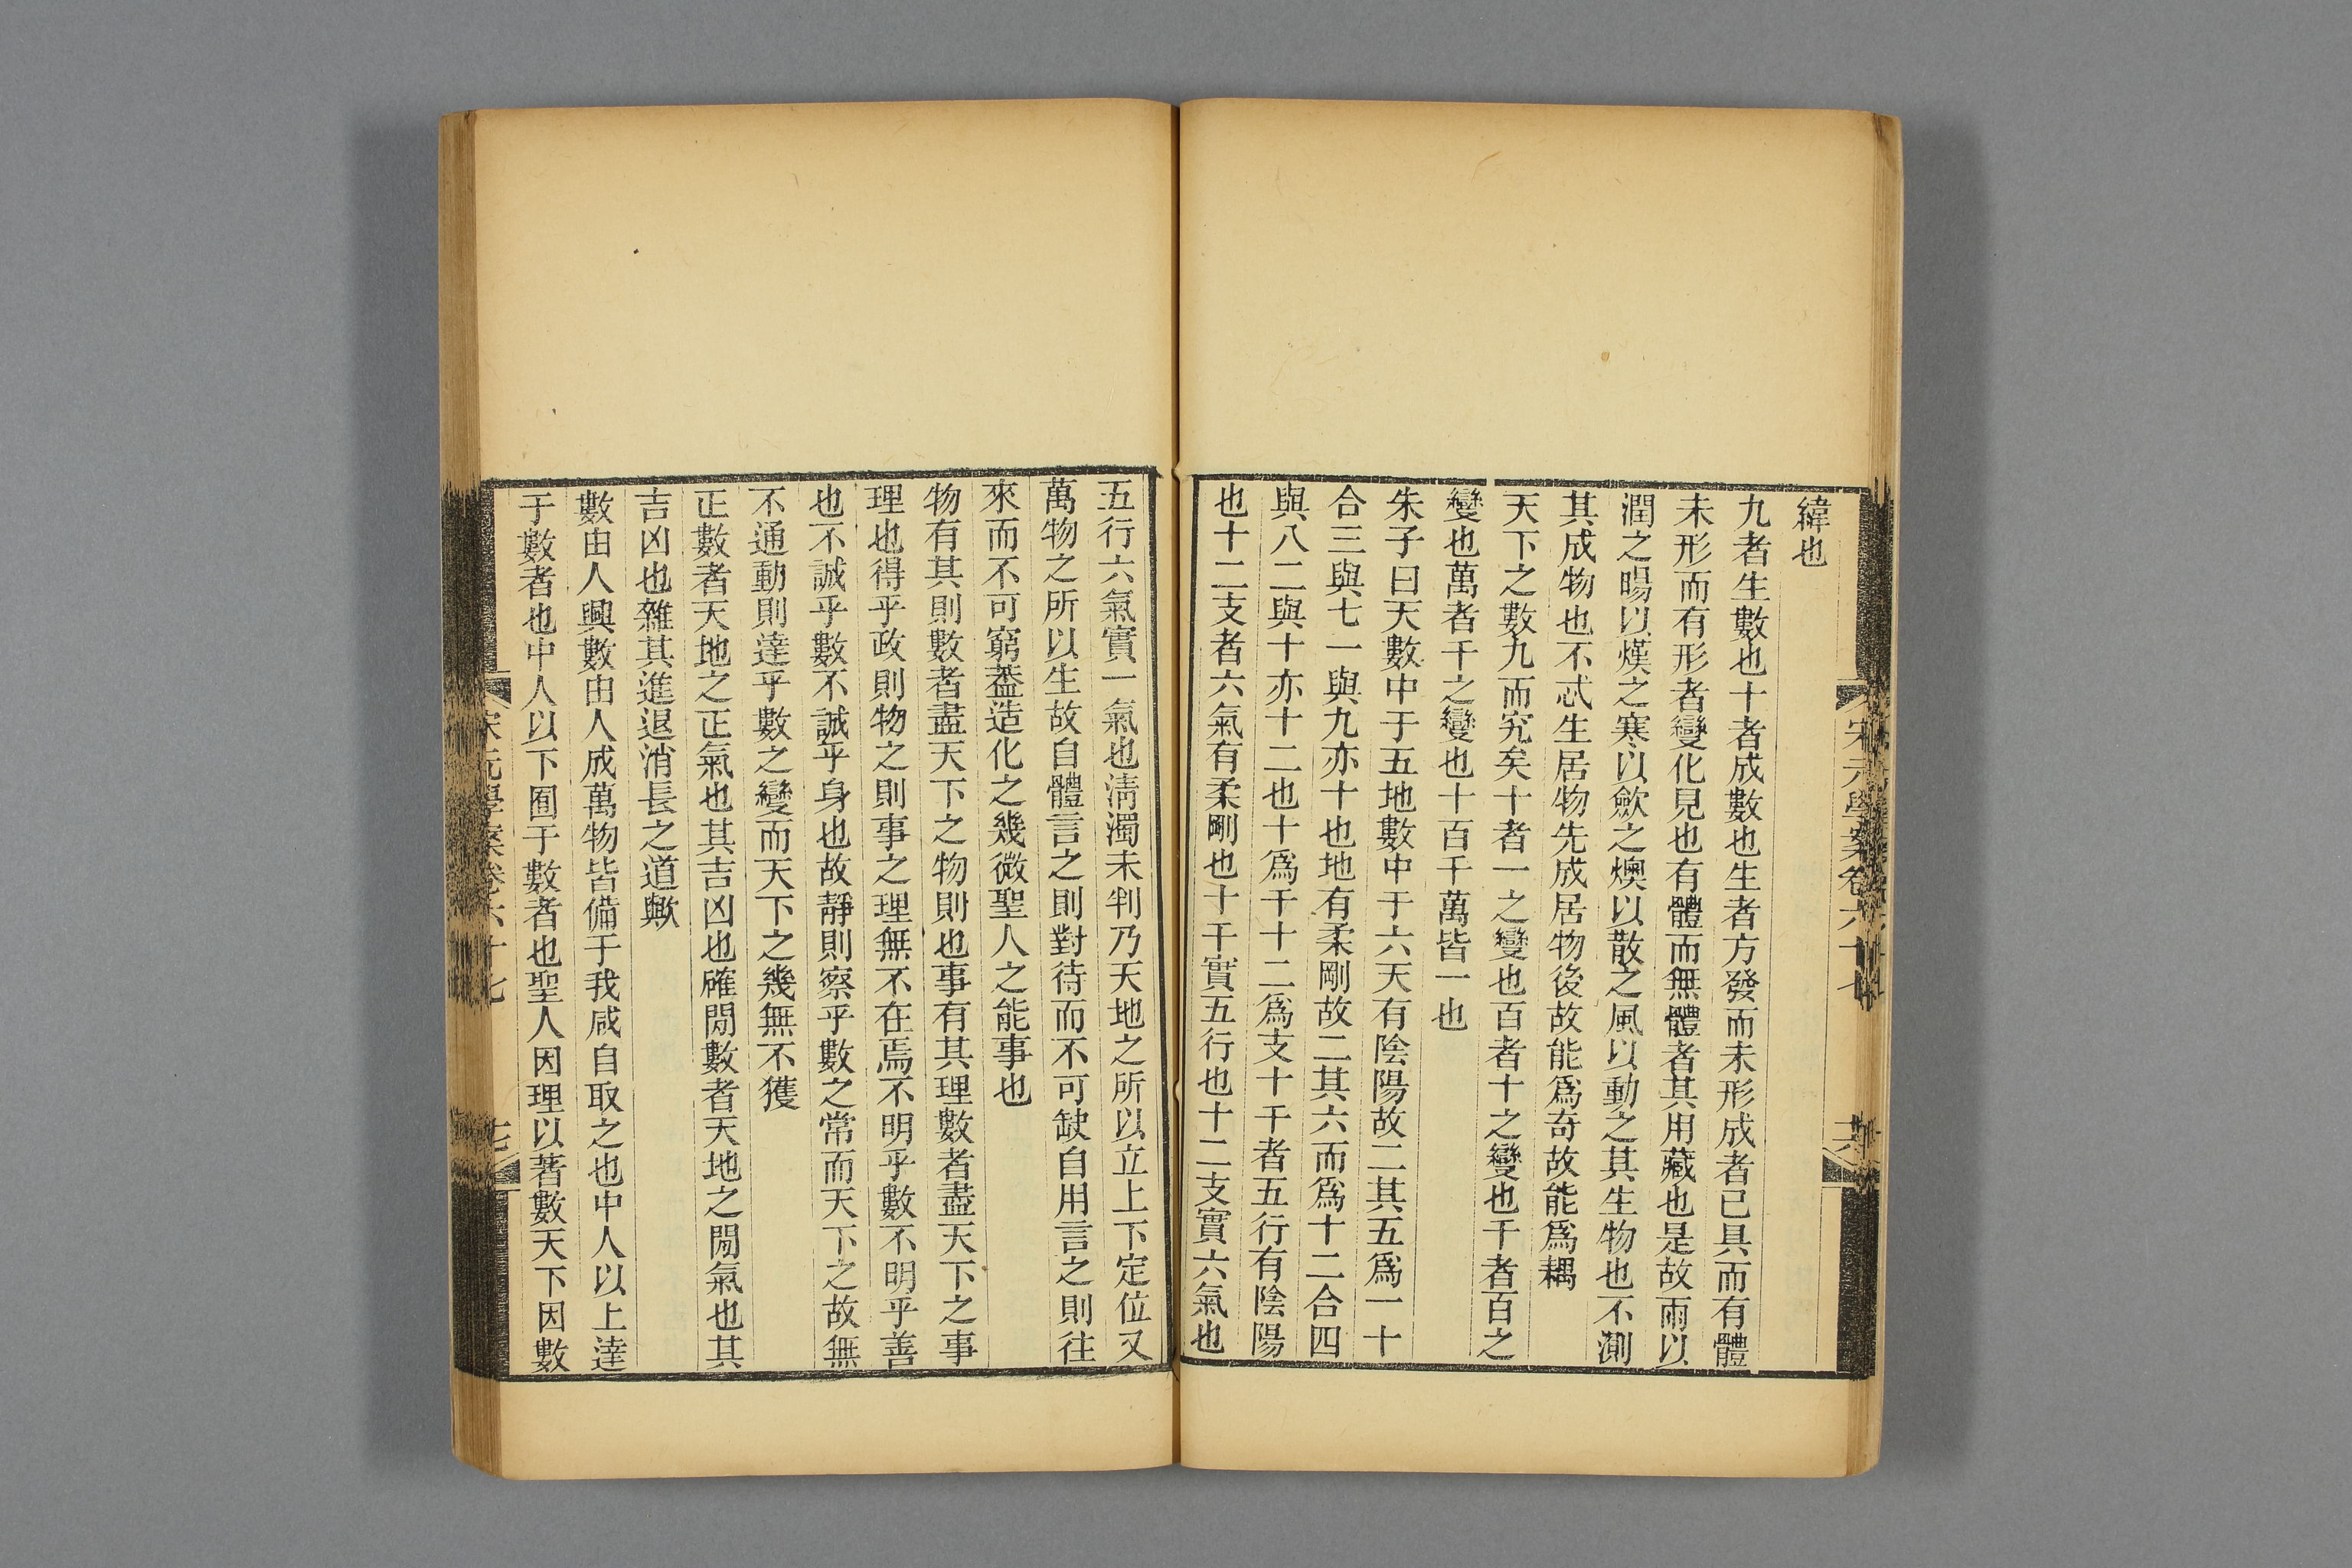 緯也
九者生數也十者成數也生者方發而未形成者已具而有體
未形而有形者變化見也有體而無體者其用藏也是故雨以
潤之暘以熯之寒以歛之燠以散之風以動之其生物也不測
其成物也不忒生居物先成居物後故能爲奇故能爲耦
天下之數九而究矣十者一之變也百者十之變也千者百之
變也萬者千之變也十百千萬皆一也
朱子曰天數中于五地數中于六天有陰陽故二其五爲一十
合三與七一與九亦十也地有柔剛故二其六而爲十二合四
與八二與十亦十二也十爲干十二爲支十干者五行有陰陽
也十二支者六氣有柔剛也十干實五行也十二支實六氣也
五行六氣實一氣也淸濁未判乃天地之所以立上下定位又
萬物之所以生故自體言之則對待而不可缺自用言之則往
來而不可窮葢造化之幾微聖人之能事也
物有其則數者盡天下之物則也事有其理數者盡天下之事
理也得乎政則物之則事之理無不在焉不明乎數不明乎善
也不誠乎數不誠乎身也故靜則察乎數之常而天下之故無
不通動則達乎數之變而天下之幾無不獲
正數者天地之正氣也其吉凶也確閒數者天地之閒氣也其
吉凶也雜其進退消長之道歟
數由人興數由人成萬物皆備于我咸自取之也中人以上達
于數者也中人以下囿于數者也聖人因理以著數天下因數
宋元學案卷六十七